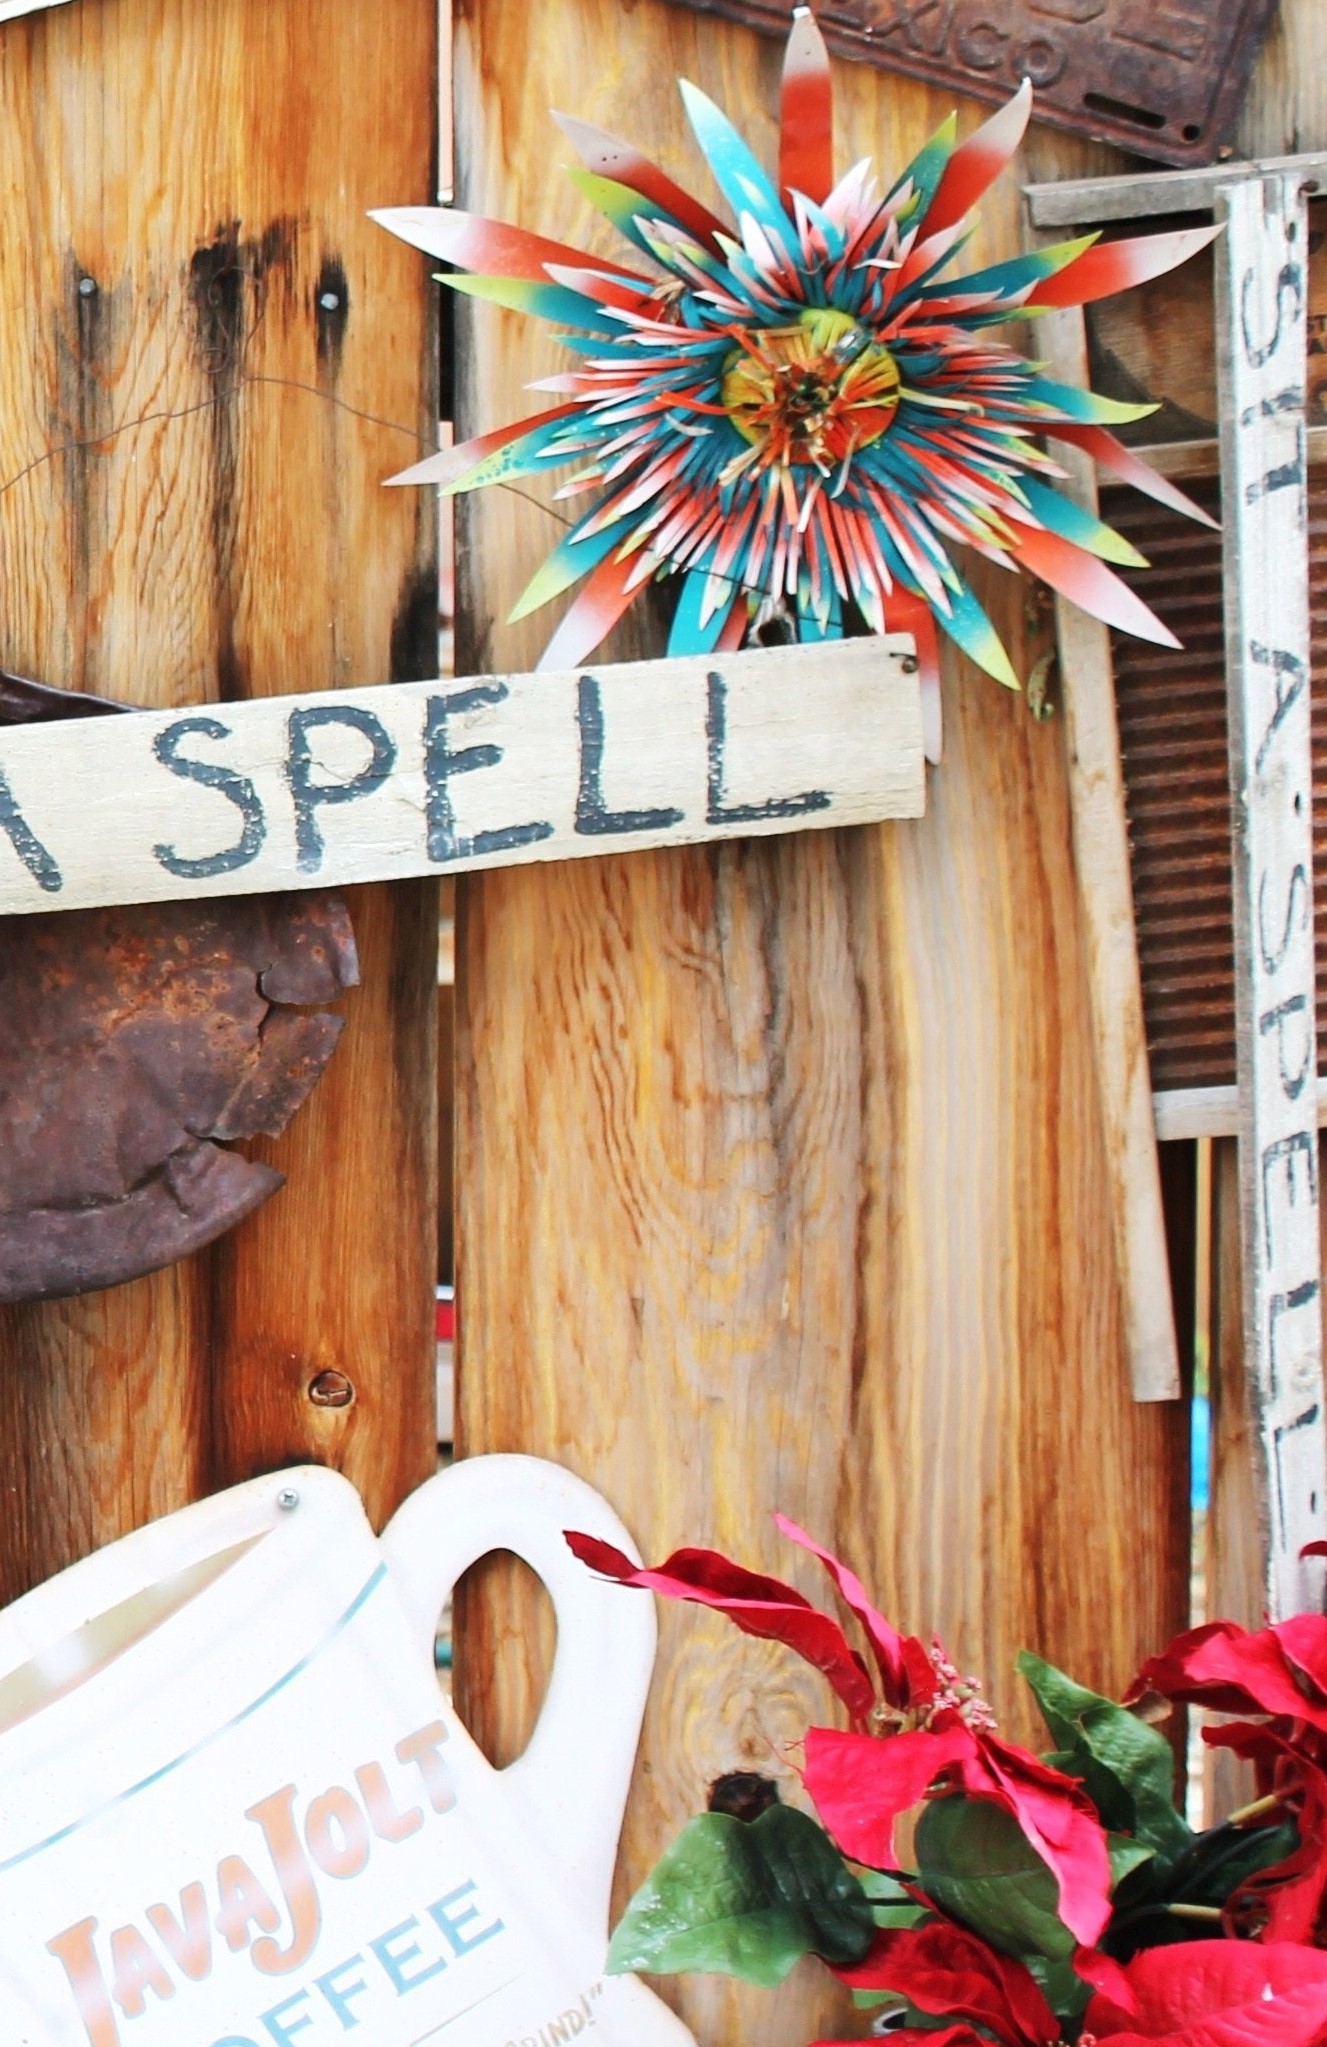 exico
A SPELL
·SIT·A·SPELL·
JAVA JOLT
OFFEE